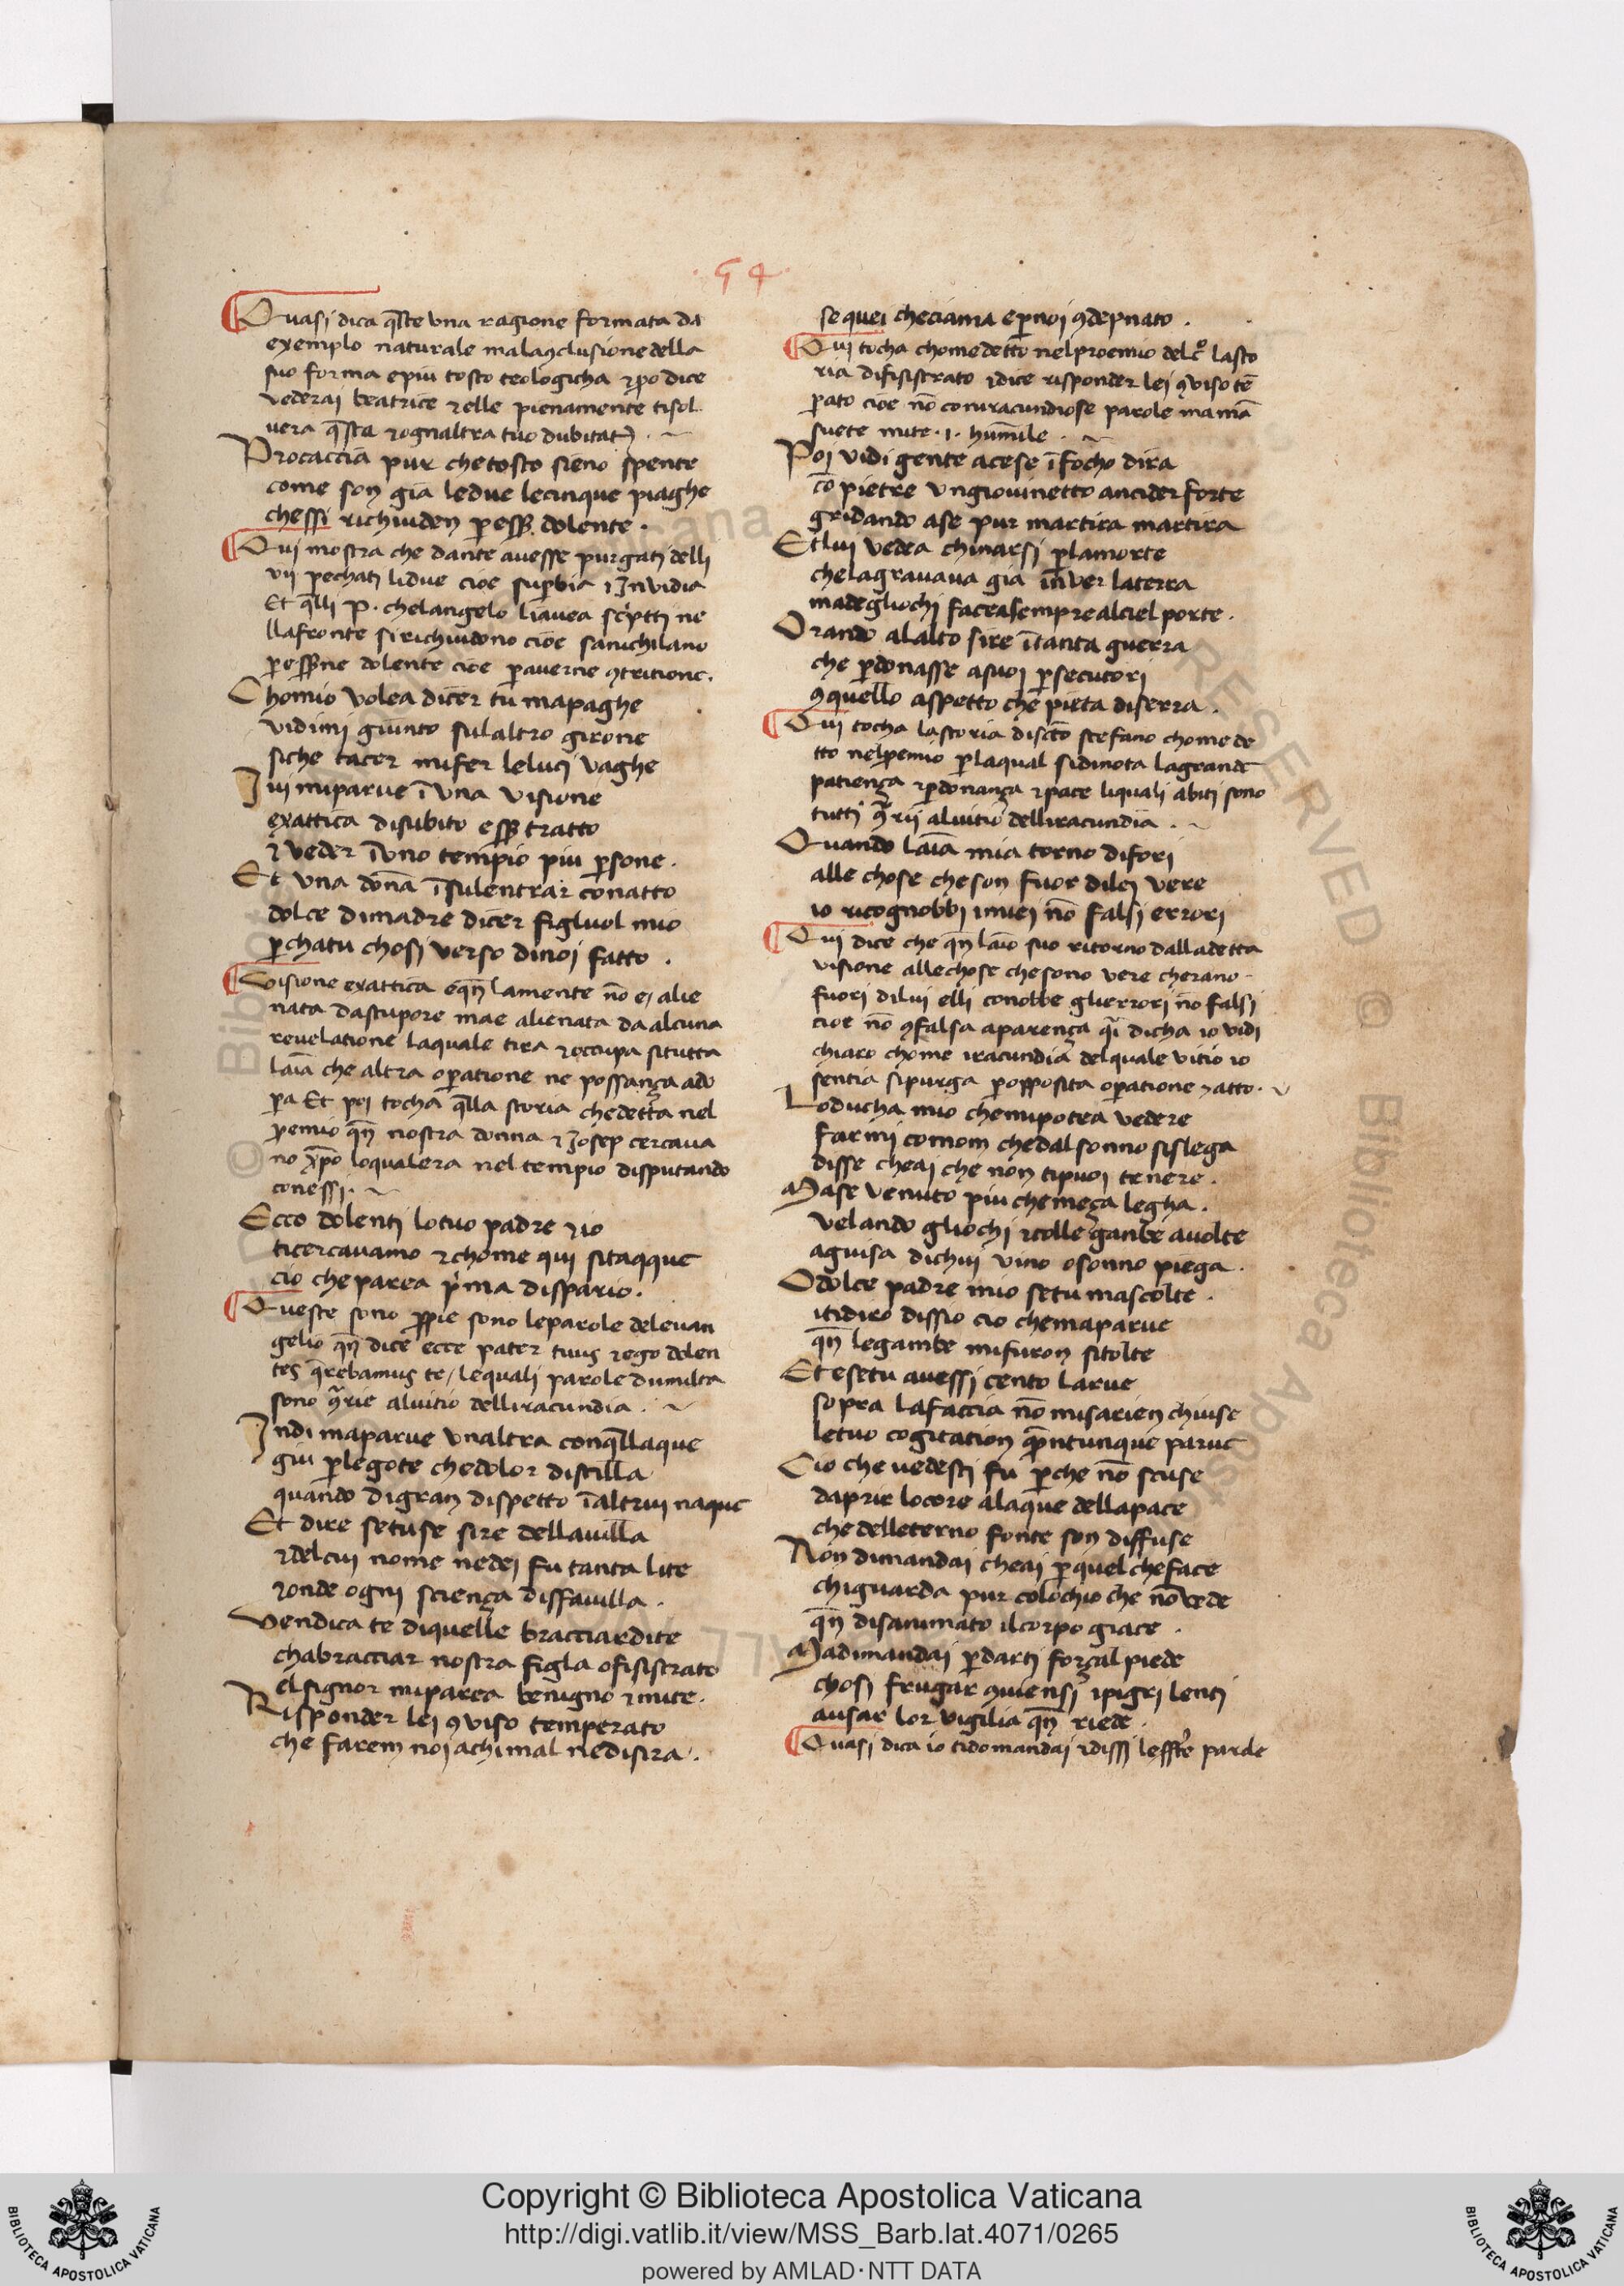 54
Quasi dica q̄ste una ragione formata da
exemplo naturale mala ꝯclusione della
suo forma e piu tosto teologicha ⁊ p̄o dice
vederai beatrice ⁊ elle pienamente tisol
vera q̄sta ⁊ ognaltra tuo dubitat
Procaccia pur che tosto sieno spente
come son gia le due le cinque piaghe
chessi richiuden ꝑ ess̄ dolente .
Qui mostra che dante avesse purgati delli
vii pechati li due cioe suꝑbia ⁊ Invidia
Et q̄lli P. che langelo li avea scritti ne
lla fronte si richiudono cioe sanichilano
ꝑ ess̄ne dolente cioe ꝑ averne ꝯtritione.
Chomio volea dicer tu mapaghe
vidimi giunto sulaltro girone
siche tacer mi fer le luci vaghe
Ivi mi parve ī una visione
exattica di subito ess̄ tratto
⁊ veder ī uno tempio piu ꝑsone .
Et una dōna ī sulentrar con atto
dolce di madre dicer figluol mio
ꝑcha tu chosi verso di noi fatto .
Visione exattica e qn̄ la mente nō e alie
nata da stupore mae alienata da alcuna
revelatione laquale tira ⁊ occupa si tutta
laīa che altra oꝑatione ne possança ado
ꝑa Et poi tocha q̄lla storia che detta nel
ꝓemio qn̄ nostra donna ⁊ Josep cercava
no xp̄o loqualera nel tempio disputando
con essi .
Ecco dolenti lo tuo padre ⁊ io
ti cercavamo ⁊ chome qui si taqque
cio che parea pima dispario.
Queste sono ꝓpie sono le parole del evan
gelio qn̄ dice ecce pater tuus ⁊ ego dolen
tes q̄rebamus te / lequali parole dumilta
sono ꝯ̄rie al vitio delliracundia .
Indi maparve unaltra con q̄llaque
giu ꝑ le gote chedolor distilla
quando di gran dispetto ī altrui naque
Et dire setu se sire della villa
⁊ del cui nome ne dei fu tanta lite
⁊ onde ogni sciença disfavilla .
Vendica te di quelle braccia ardite
chabracciar nostra figla o fisistrato
el signor mi parea benigno ⁊ mite.
Risponder lei ꝯ viso temperato
che farem noi achi mal ne disira .
se quei che ci ama e ꝑ noi ꝯdepnato .
Qui tocha chome detto nel proemio del co lasto
ria di fisistrato ⁊ dice risponder lei ꝯ viso tē
ꝑato cioe nō con iracundiose parole ma mā
suete mite .i. humile .
Poi vidi gente acese ī focho dira
cō pietre un giovinetto ancider forte
gridando a se pur martira martira
Et lui vedea chinarsi ꝑ la morte
che lagravava gia inver la terra
ma degliochi facea sempre al ciel porte .
Orando alalto sire ī tanta guerra
che ꝑdonasse a suoi ꝑsecutori
ꝯ quello aspetto che pieta diserra .
Qui tocha la storia di scō stefano chome de
tto nel ꝓemio ꝑ laqual si dinota la grande
patiença ⁊ ꝑdonança ⁊ pace li quali abiti sono
tutti ꝯ̄rii al vitio delliracundia .
Quando laīa mia torno di fori
alle chose che son fuor di lei vere
io ricognobbi i miei nō falsi errori
Qui dice che qn̄ laīa suo ritorno dalla detta
visione alle chose che sono vere cherano
fuori di lui elli conobbe gli errori nō falsi
cioe nō ꝯ falsa aparença q̄i dicha io vidi
chiaro chome iracundia del quale vitio io
sentia si purga ꝑ opposita oꝑatione ⁊ atto.
Lo ducha mio che mi potea vedere
farmi comom che dal sonno sislega
disse cheai che non ti puoi tenere .
Ma se venuto piu che meça legha .
velando gliochi ⁊ colle gambe avolte
a guisa di chui vino o sonno piega .
O dolce padre mio se tu mascolte .
i ti diro dissio cio che maparve
qn̄ le gambe mi furon si tolte
Et e se tu avessi cento larve
sopra la faccia nō mi sarien chiuse
le tuo cogitation quantunque parve
Cio che vedesti fu ꝑche nō scuse
daprir lo core alaque della pace
che delleterno fonte son diffuse
Non dimandai cheai ꝑ quel che face
chi guarda pur colochio che nō vede
qn̄ disanimato il corpo giace .
Ma dimandai ꝑ darti força al piede
chosi frugar ꝯviensi i pigri lenti
a usar lor vigilia qn̄ riede .
Quasi dica io ti domandai ⁊ dissi parde